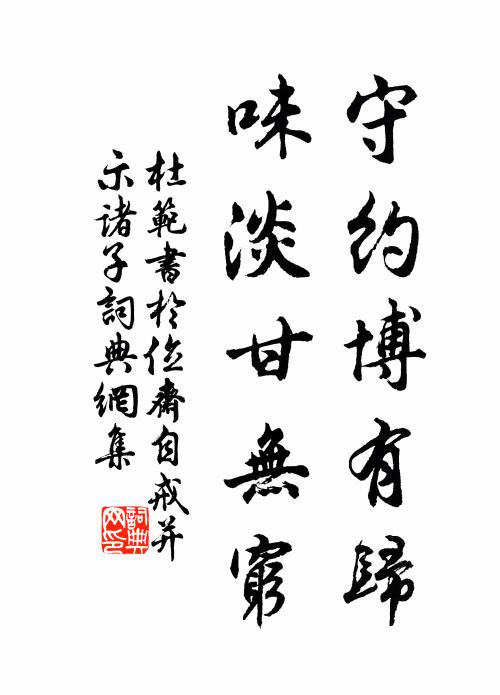 守約博有歸
味淡甘無窮
杜範書於儉齋自戒并
示諸子詞典網集
詞典网印